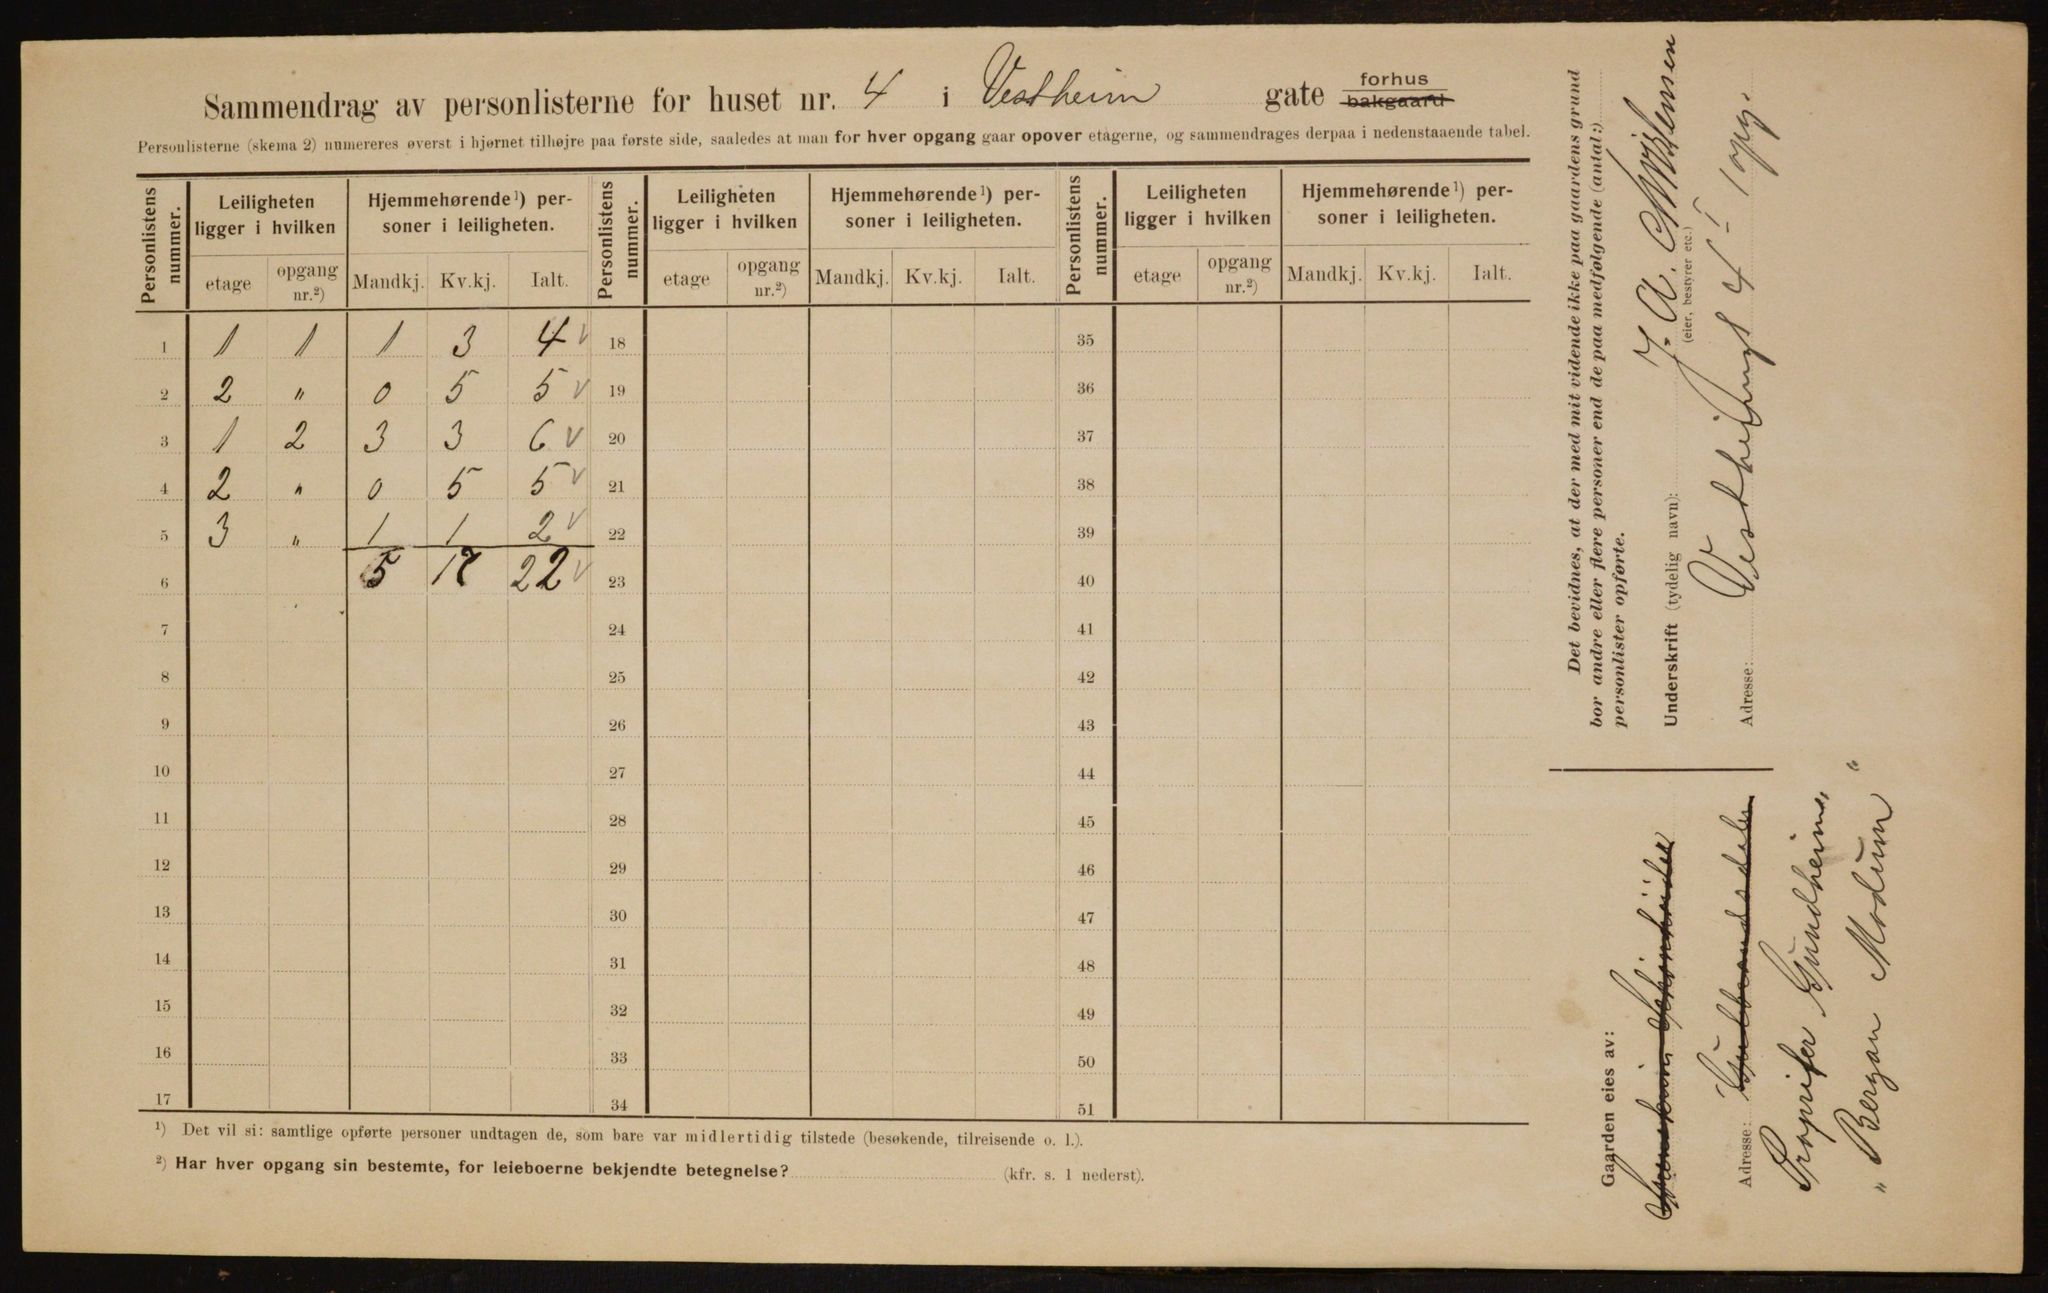 Sammendrag av personlisterne for huset nr. 4 i Vestheim gate forhus bakgaard
Personlisterne (skema 2) numereres øverst i hjørnet tilhøjre paa første side, saaledes at man for hver opgang gaar opover etagerne, og sammendrages derpaa i nedenstaaende tabel.
Personlistens nummer. Leiligheten ligger i hvilken Hjemmehørende ¹) personer i leiligheten. Personlistens nummer. Leiligheten ligger i hvilken Hjemmehørende ¹) personer i leiligheten. Personlistens nummer. Leiligheten ligger i hvilken Hjemmehørende ¹) personer i leiligheten.
etage opgang nr.²) Mandkj. Kv.kj. Ialt. etage opgang nr.²) Mandkj. Kv.kj. Ialt. etage opgang nr.²) Mandkj. Kv.kj. Ialt.
1 1 1 1 3 4 v 18 35
2 2 " 0 5 5 v 19 36
3 1 2 3 3 6 v 20 37
4 2 " 0 5 5 v 21 38
5 3 " 1 1 2 v 22 39
6 5 17 22 v 23 40
7 24 41
8 25 42
9 26 43
10 27 44
11 28 45
12 29 46
13 30 47
14 31 48
15 32 49
16 33 50
17 34 51
¹) Det vil si: samtlige opførte personer undtagen de, som bare var midlertidig tilstede (besøkende, tilreisende o. l.).
²) Har hver opgang sin bestemte, for leieboerne bekjendte betegnelse? (kfr. s. 1 nederst).
Det bevidnes, at der med mit vidende ikke paa gaardens grund
bor andre eller flere personer end de paa medfølgende (antal:)
personlister opførte.
Underskrift (tydelig navn): J. A.
(eier, bestyrer etc.)
Adresse: 4 I opg.
Gaarden eies av:
Adresse: Gulbrandsdalen
Propritær Gundheim,
" Bergan Modum "